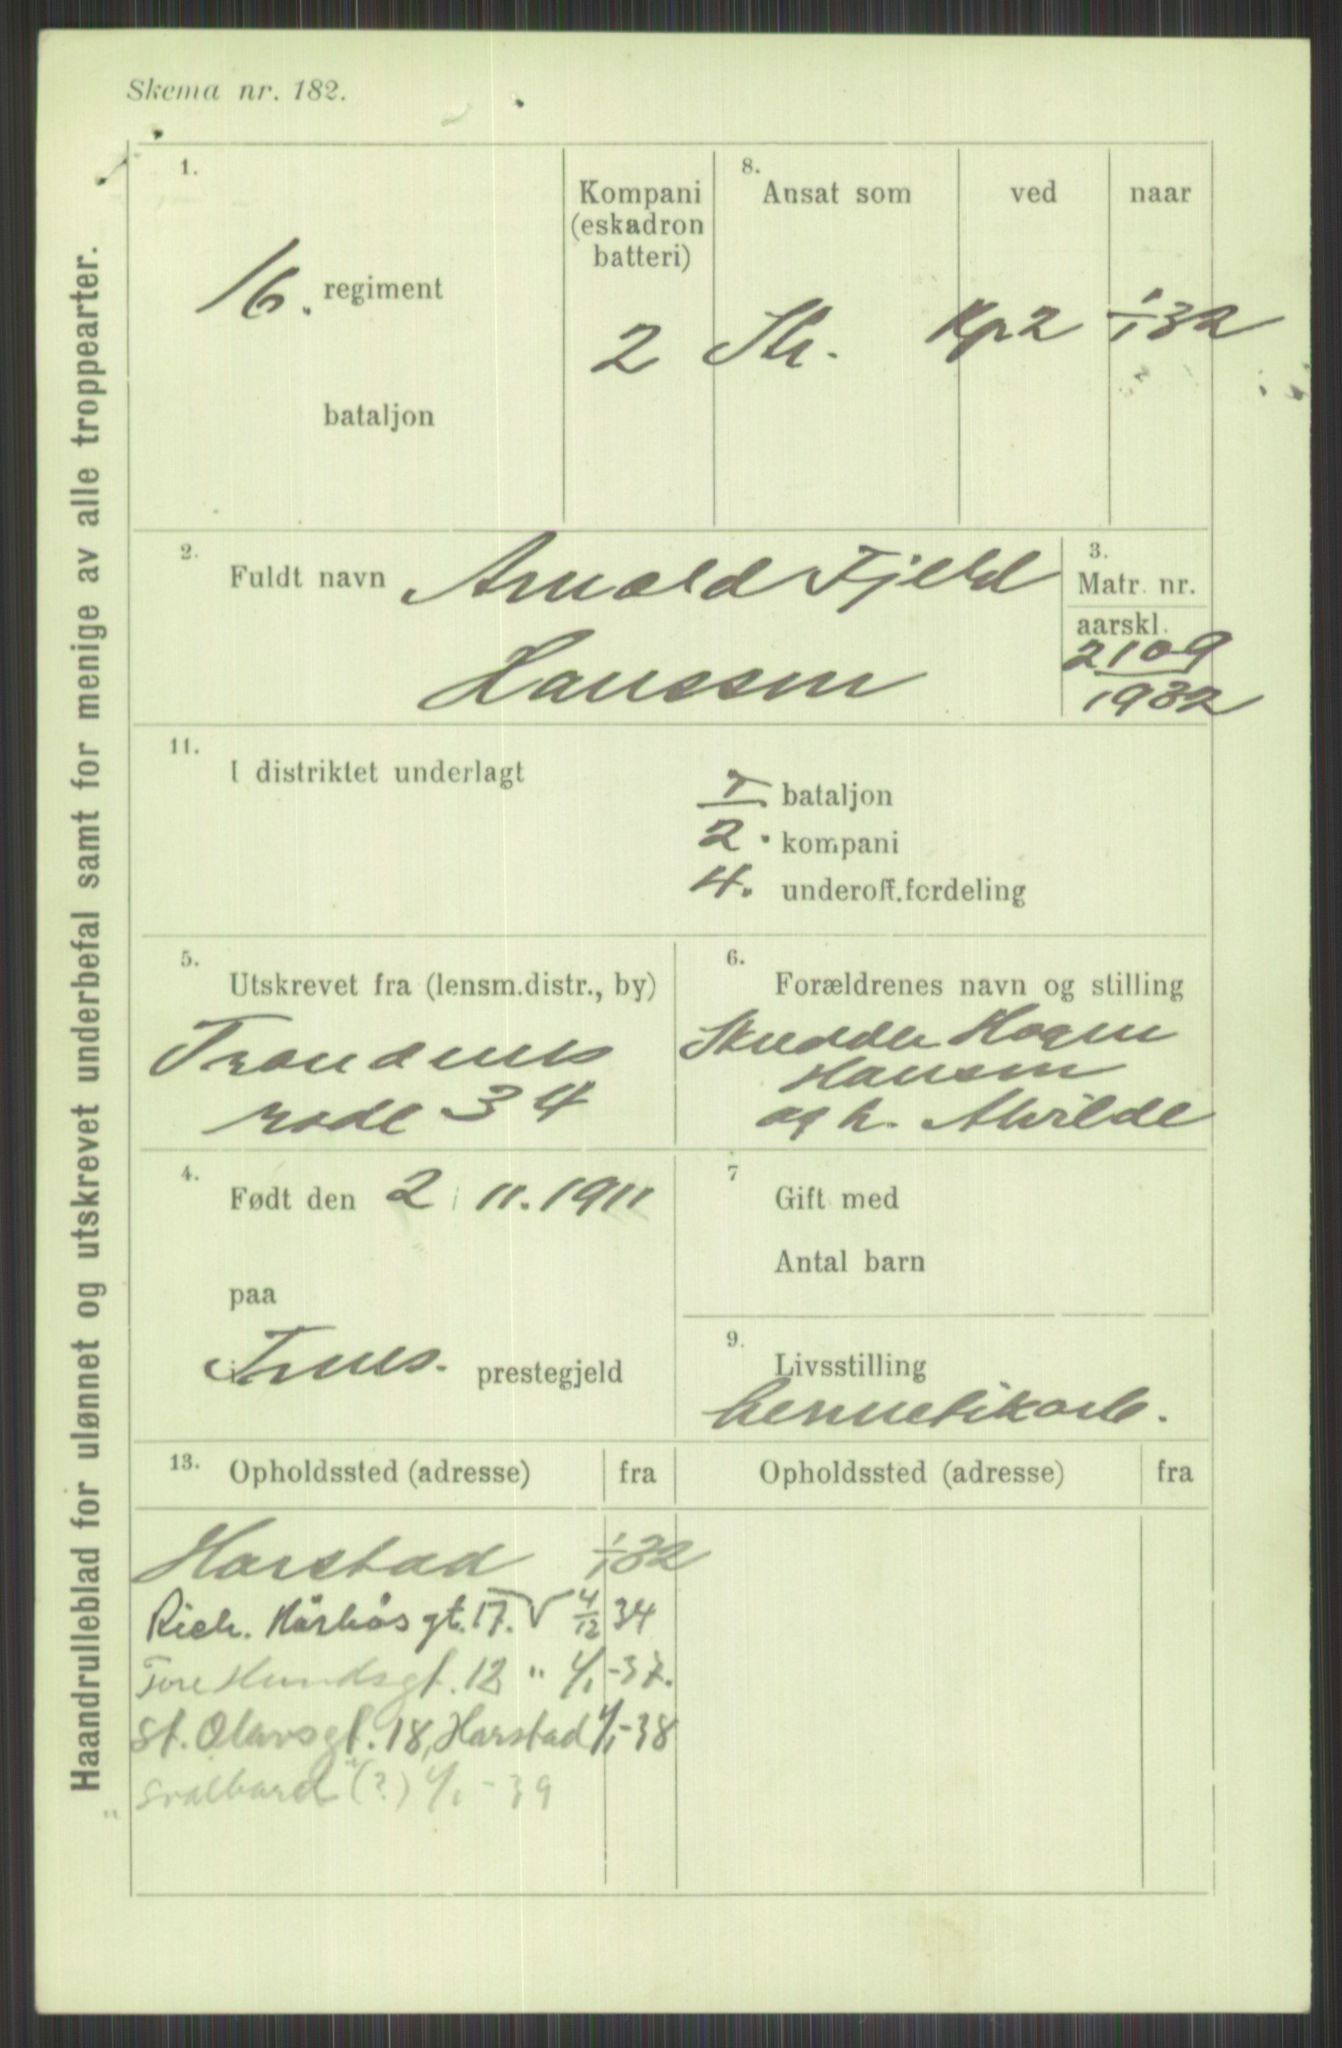 Skema nr. 182.
Haandrulleblad for ulønnet og utskrevet underbefal samt for menige av alle troppearter.
1.
16. regiment
bataljon
Kompani
(eskadron
batteri)
2
8.
Ansat som
ved
naar
Kp 2
1/1 32
2.
Fuldt navn Arnold Fjeld
Hanssen
3.
Matr. nr.
aarskl.
2109
1932
11.
I distriktet underlagt
I. bataljon
2. kompani
4. underoff.fordeling
5.
Utskrevet fra (lensm.distr., by)
Trondenes
rode 34
6.
Forældrenes navn og stilling
Hansen
og h. Alvilde
4.
Født den 2 11. 1911
paa
Trnes. prestegjeld
7
Gift med
Antal barn
9.
Livsstilling
hermetikarb.
13. Opholdssted (adresse) fra
Opholdssted (adresse) fra
Harstad 1/1 32
Rich. Kårbøs gt. 17. V 4/12 34
Tore Hundsgt. 12 " 1/1-37.
St. Olavsgt. 18, Harstad 1/1-38
"Svalbard" (?) 1/1-39